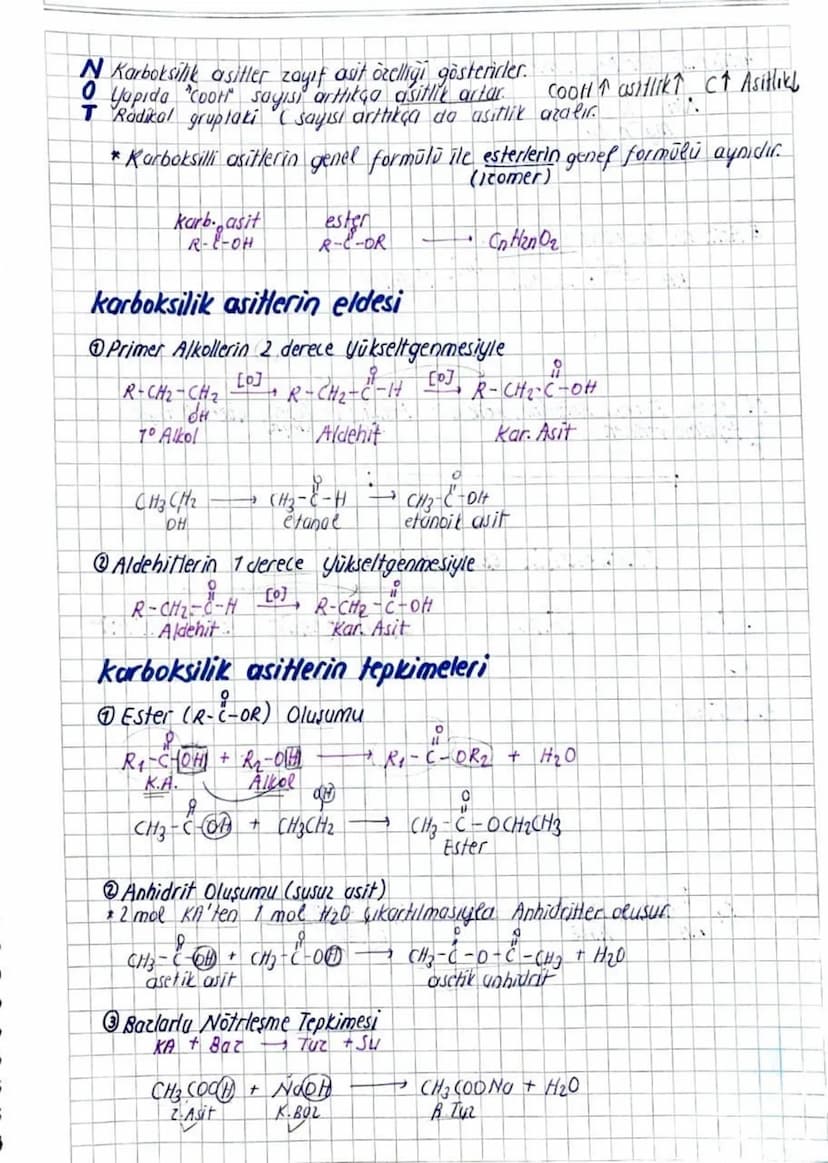 NOT Karboksilik asitler zayıf asit özelliği gösterirler.
Yapıda "COOH" sayısı arttıkça asitlik artar COOH↑ asitlik↑ C↑ Asitlik↓
Radikal gruptaki C sayısı arttıkça da asitlik azalır.
* Karboksilli asitlerin genel formülü ile esterlerin genel formülü aynıdır.
(izomer)
karb. asit ester
R-C(=O)-OH R-C(=O)-OR → CnH2nO2
karboksilik asitlerin eldesi
① Primer Alkollerin 2 derece Yükseltgenmesiyle
R-CH2-CH2 [O]→ R-CH2-C(=O)-H [O]→ R-CH2-C(=O)-OH
OH
1° Alkol Aldehit Kar. Asit
CH3CH2 → CH3-C(=O)-H → CH3-C(=O)-OH
OH etanal etanoik asit
② Aldehitlerin 1 derece Yükseltgenmesiyle
R-CH2-C(=O)-H [O]→ R-CH2-C(=O)-OH
Aldehit Kar. Asit
karboksilik asitlerin tepkimeleri
① Ester (R-C(=O)-OR) Oluşumu
R1-C(=O)-OH + R2-OH → R1-C(=O)-OR2 + H2O
K.A. Alkol
OH
CH3-C(=O)-OH + CH3CH2 → CH3-C(=O)-OCH2CH3
Ester
② Anhidrit Oluşumu (susuz asit)
* 2 mol KA'ten 1 mol H2O çıkartılmasıyla Anhidritler oluşur.
CH3-C(=O)-OH + CH3-C(=O)-OH → CH3-C(=O)-O-C(=O)-CH3 + H2O
asetik asit asetik anhidrit
③ Bazlarla Nötrleşme Tepkimesi
KA + Baz → Tuz + Su
CH3COOH + NaOH → CH3COONa + H2O
Z.Asit K.Baz B Tuz